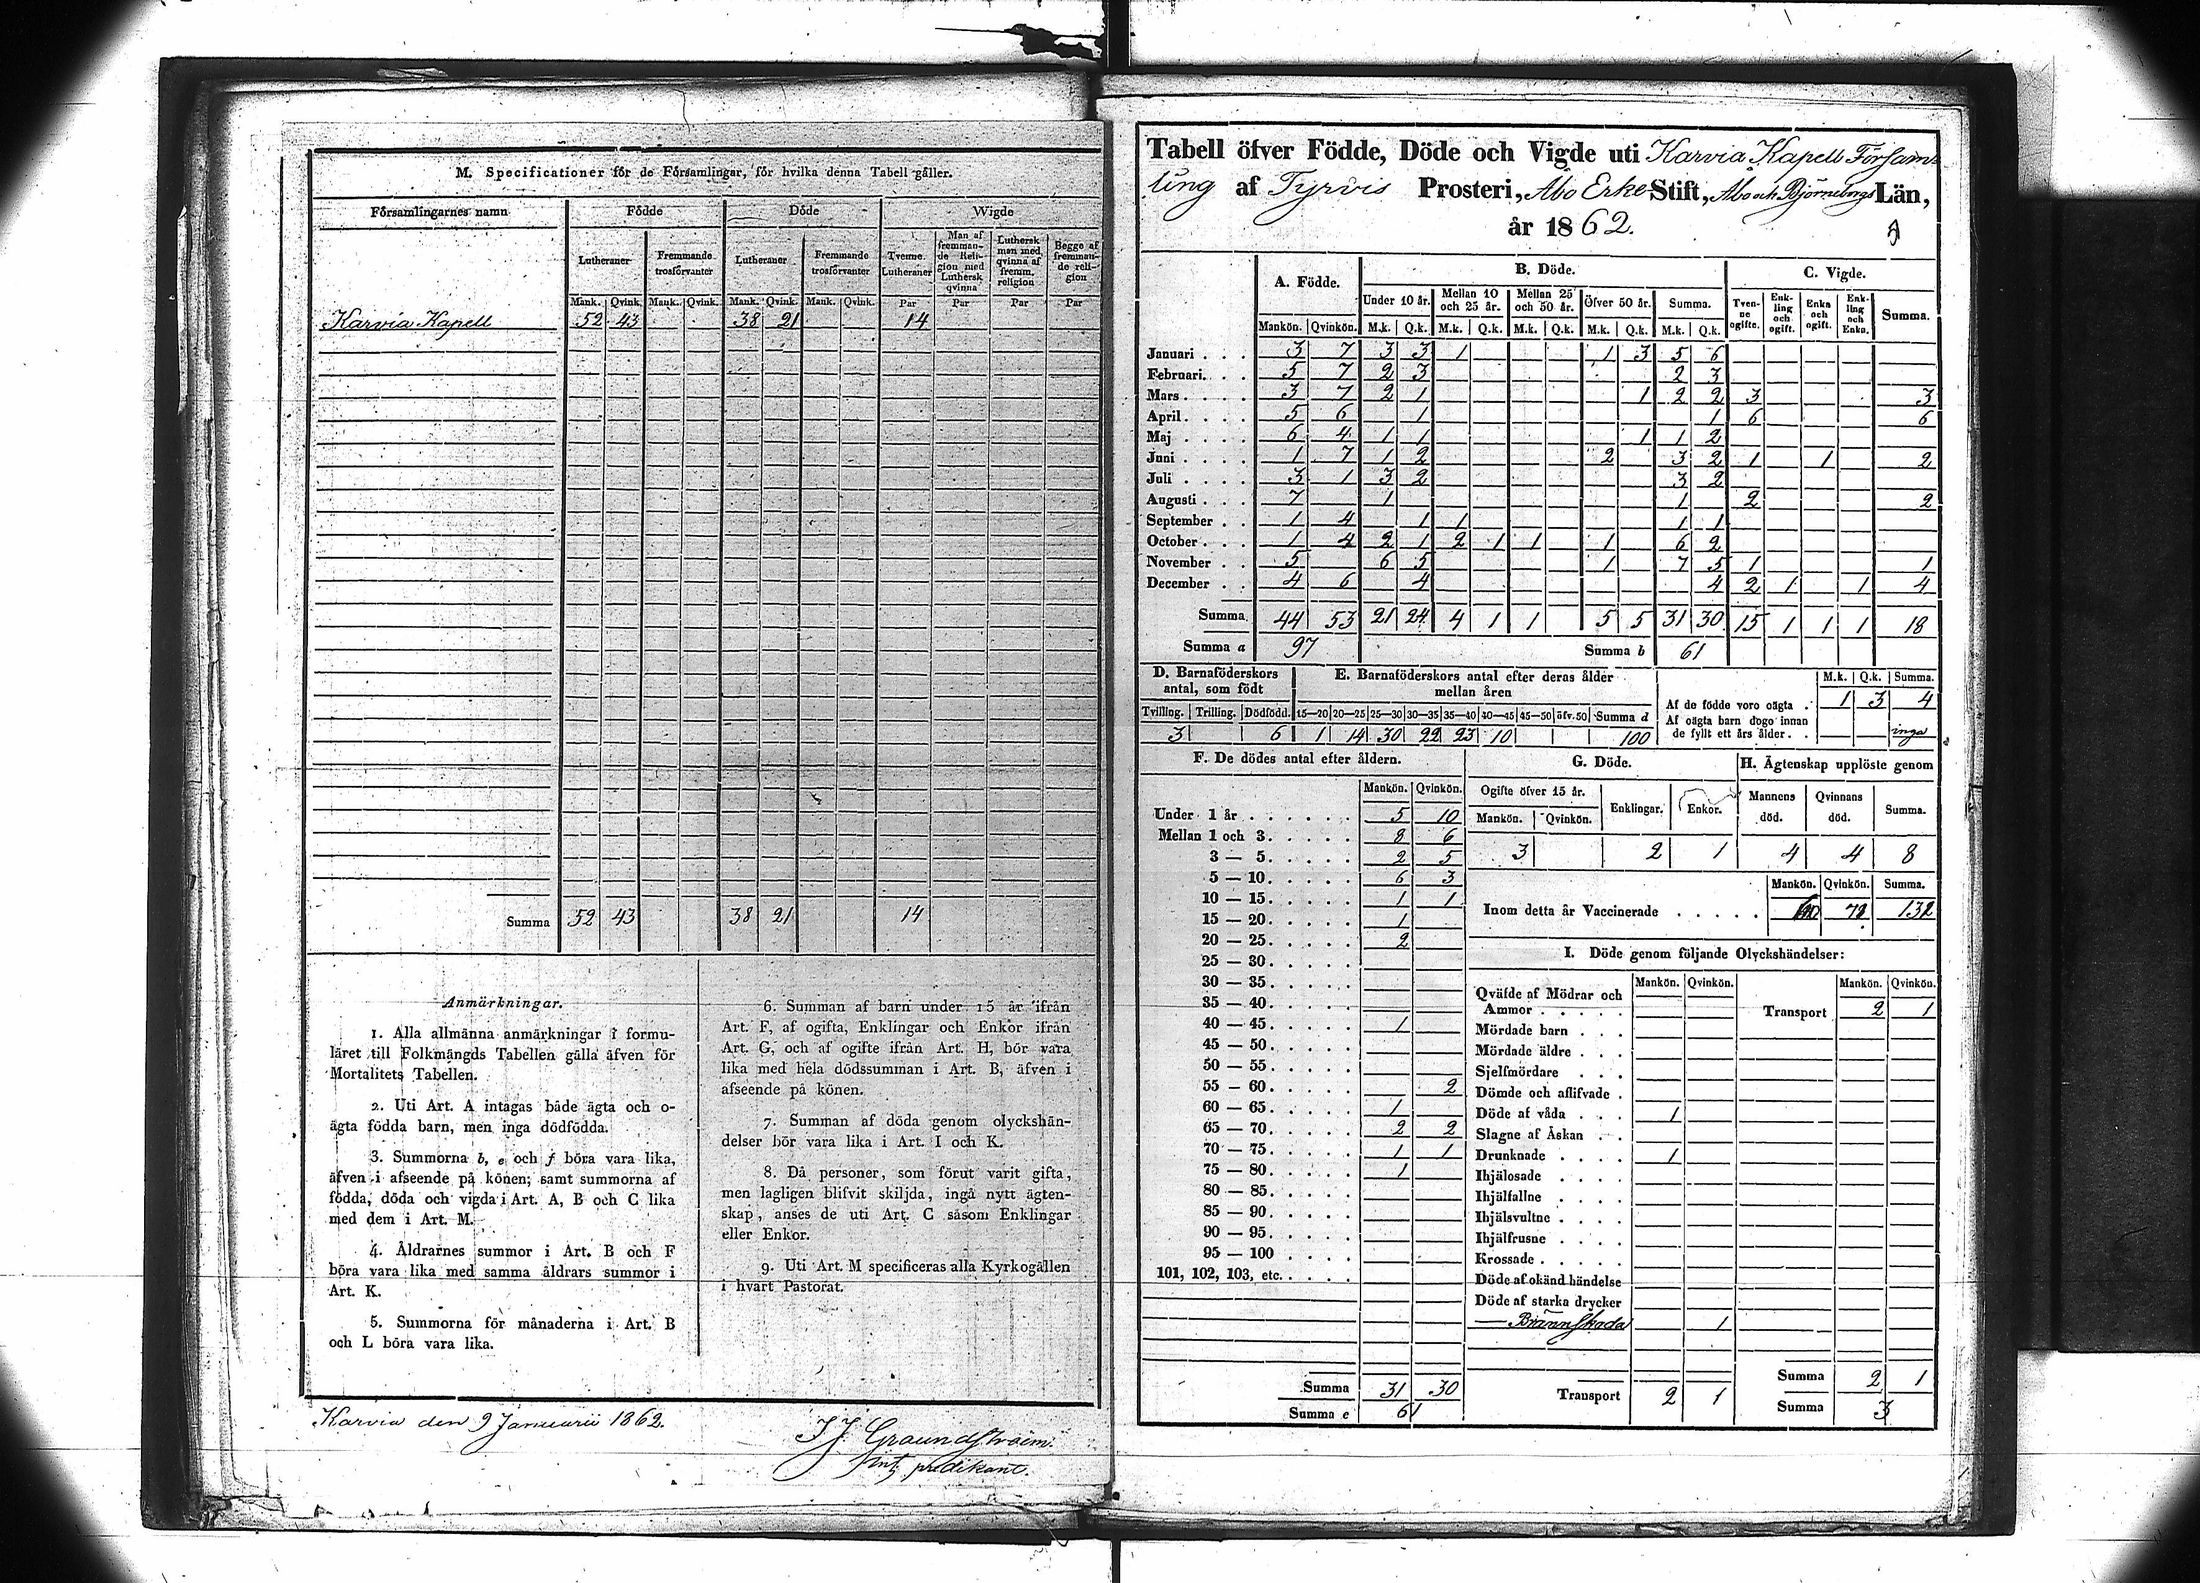 M. Specificationer för de Församlingar, för hvilka denna Tabell gäller.
Församlingarnes namn | Födde | Döde | Wigde
Lutheraner | Fremmande trosförvanter | Lutheraner | Fremmande trosförvanter | Tvenne Lutheraner | Man af fremmande Religion med Luthersk qvinna | Luthersk man med qvinna af fremm. religion | Begge af fremmande religion
Mank. | Qvink. | Mank. | Qvink. | Mank. | Qvink. | Mank. | Qvink. | Par | Par | Par | Par
Karvia Kapell 52 43 38 21 14
Summa 52 43 38 21 14
Anmärkningar.
1. Alla allmänna anmärkningar i formu-
läret till Folkmängds Tabellen gälla äfven för
Mortalitets Tabellen.
2. Uti Art. A intagas både ägta och o-
ägta födda barn, men inga dödfödda.
3. Summorna b, e och f böra vara lika,
äfven i afseende på könen; samt summorna af
födda, döda och vigda i Art. A, B och C lika
med dem i Art. M.
4. Åldrarnes summor i Art. B och F
böra vara lika med samma åldrars summor i
Art. K.
5. Summorna för månaderna i Art. B
och L böra vara lika.
6. Summan af barn under 15 år ifrån
Art. F, af ogifta, Enklingar och Enkor ifrån
Art. G, och af ogifte ifrån Art. H, bör vara
lika med hela dödssumman i Art. B, äfven i
afseende på könen.
7. Summan af döda genom olyckshän-
delser bör vara lika i Art. I och K.
8. Då personer, som förut varit gifta,
men lagligen blifvit skiljda, ingå nytt ägten-
skap, anses de uti Art. C såsom Enklingar
eller Enkor.
9. Uti Art. M specificeras alla Kyrkogällen
i hvart Pastorat.
Karvia den 9 Januarii 1862.
Tabell öfver Födde, Döde och Vigde uti Karvia Kapell Försam-
ling af Tyrvis Prosteri, Åbo Erke Stift, Åbo och Björneborgs Län,
år 1862.
A. Födde. | B. Döde. | C. Vigde.
Under 10 år. | Mellan 10 och 25 år. | Mellan 25 och 50 år. | Öfver 50 år. | Summa. | Tvenne ogifte. | Enkling och ogift. | Enka och ogift. | Enkling och Enka. | Summa.
Mankön. | Qvinkön. | M.k. | Q.k. | M.k. | Q.k. | M.k. | Q.k. | M.k. | Q.k. | M.k. | Q.k.
Januari . . . 3 7 3 3 1 1 3 5 6
Februari. . . 5 7 2 3 2 3
Mars . . . . 3 7 2 1 1 2 2 3 3
April . . . . 5 6 1 1 6 6
Maj . . . . 6 4 1 1 1 1 2
Juni . . . . 1 7 1 2 2 3 2 1 1 2
Juli . . . . 3 1 3 2 3 2
Augusti . . . 7 1 1 2 2
September . . 1 4 1 1 1 1
October . . . 1 4 2 1 2 1 1 1 6 2
November . . 5 6 5 1 7 5 1 1
December . . 4 6 4 4 2 1 1 4
Summa. 44 53 21 24 4 1 1 5 5 31 30 15 1 1 1 18
Summa a 97 Summa b 61
D. Barnaföderskors antal, som födt
Tvilling. | Trilling. | Dödfödd.
3 6
E. Barnaföderskors antal efter deras ålder mellan åren
15—20 | 20—25 | 25—30 | 30—35 | 35—40 | 40—45 | 45—50 | öfv. 50 | Summa d
1 14 30 22 23 10 100
M.k. | Q.k. | Summa.
Af de födde voro oägta . 1 3 4
Af oägta barn dogo innan de fyllt ett års ålder . . inga
F. De dödes antal efter åldern.
Mankön. | Qvinkön.
Under 1 år . . . . . . 5 10
Mellan 1 och 3. . . . . 8 6
3 — 5. . . . . 2 5
5 — 10. . . . . 6 3
10 — 15. . . . . 1 1
15 — 20. . . . . 1
20 — 25. . . . . 2
25 — 30. . . . .
30 — 35. . . . .
35 — 40. . . . .
40 — 45. . . . . 1
45 — 50. . . . .
50 — 55. . . . .
55 — 60. . . . . 2
60 — 65. . . . . 1
65 — 70. . . . . 2 2
70 — 75. . . . . 1 1
75 — 80. . . . . 1
80 — 85. . . . .
85 — 90. . . . .
90 — 95. . . . .
95 — 100 . . . .
101, 102, 103, etc. . . . .
Summa 31 30
Summa e 61
G. Döde.
Ogifte öfver 15 år. | Enklingar. | Enkor.
Mankön. | Qvinkön.
3 2 1
H. Ägtenskap upplöste genom
Mannens död. | Qvinnans död. | Summa.
4 4 8
Mankön. | Qvinkön. | Summa.
Inom detta år Vaccinerade . . . . . 72 132
I. Döde genom följande Olyckshändelser:
Mankön. | Qvinkön. | Mankön. | Qvinkön.
Qväfde af Mödrar och Ammor . . . . .
Transport 2 1
Mördade barn . . .
Mördade äldre . . .
Sjelfmördare . . .
Dömde och aflifvade .
Döde af våda . . . 1
Slagne af Åskan . .
Drunknade . . . . 1
Ihjälosade . . . .
Ihjälfallne . . . .
Ihjälsvultne . . . .
Ihjälfrusne . . . .
Krossade . . . . .
Döde af okänd händelse
Döde af starka drycker
— Brännskada 1
Transport 2 1
Summa 2 1
Summa 3